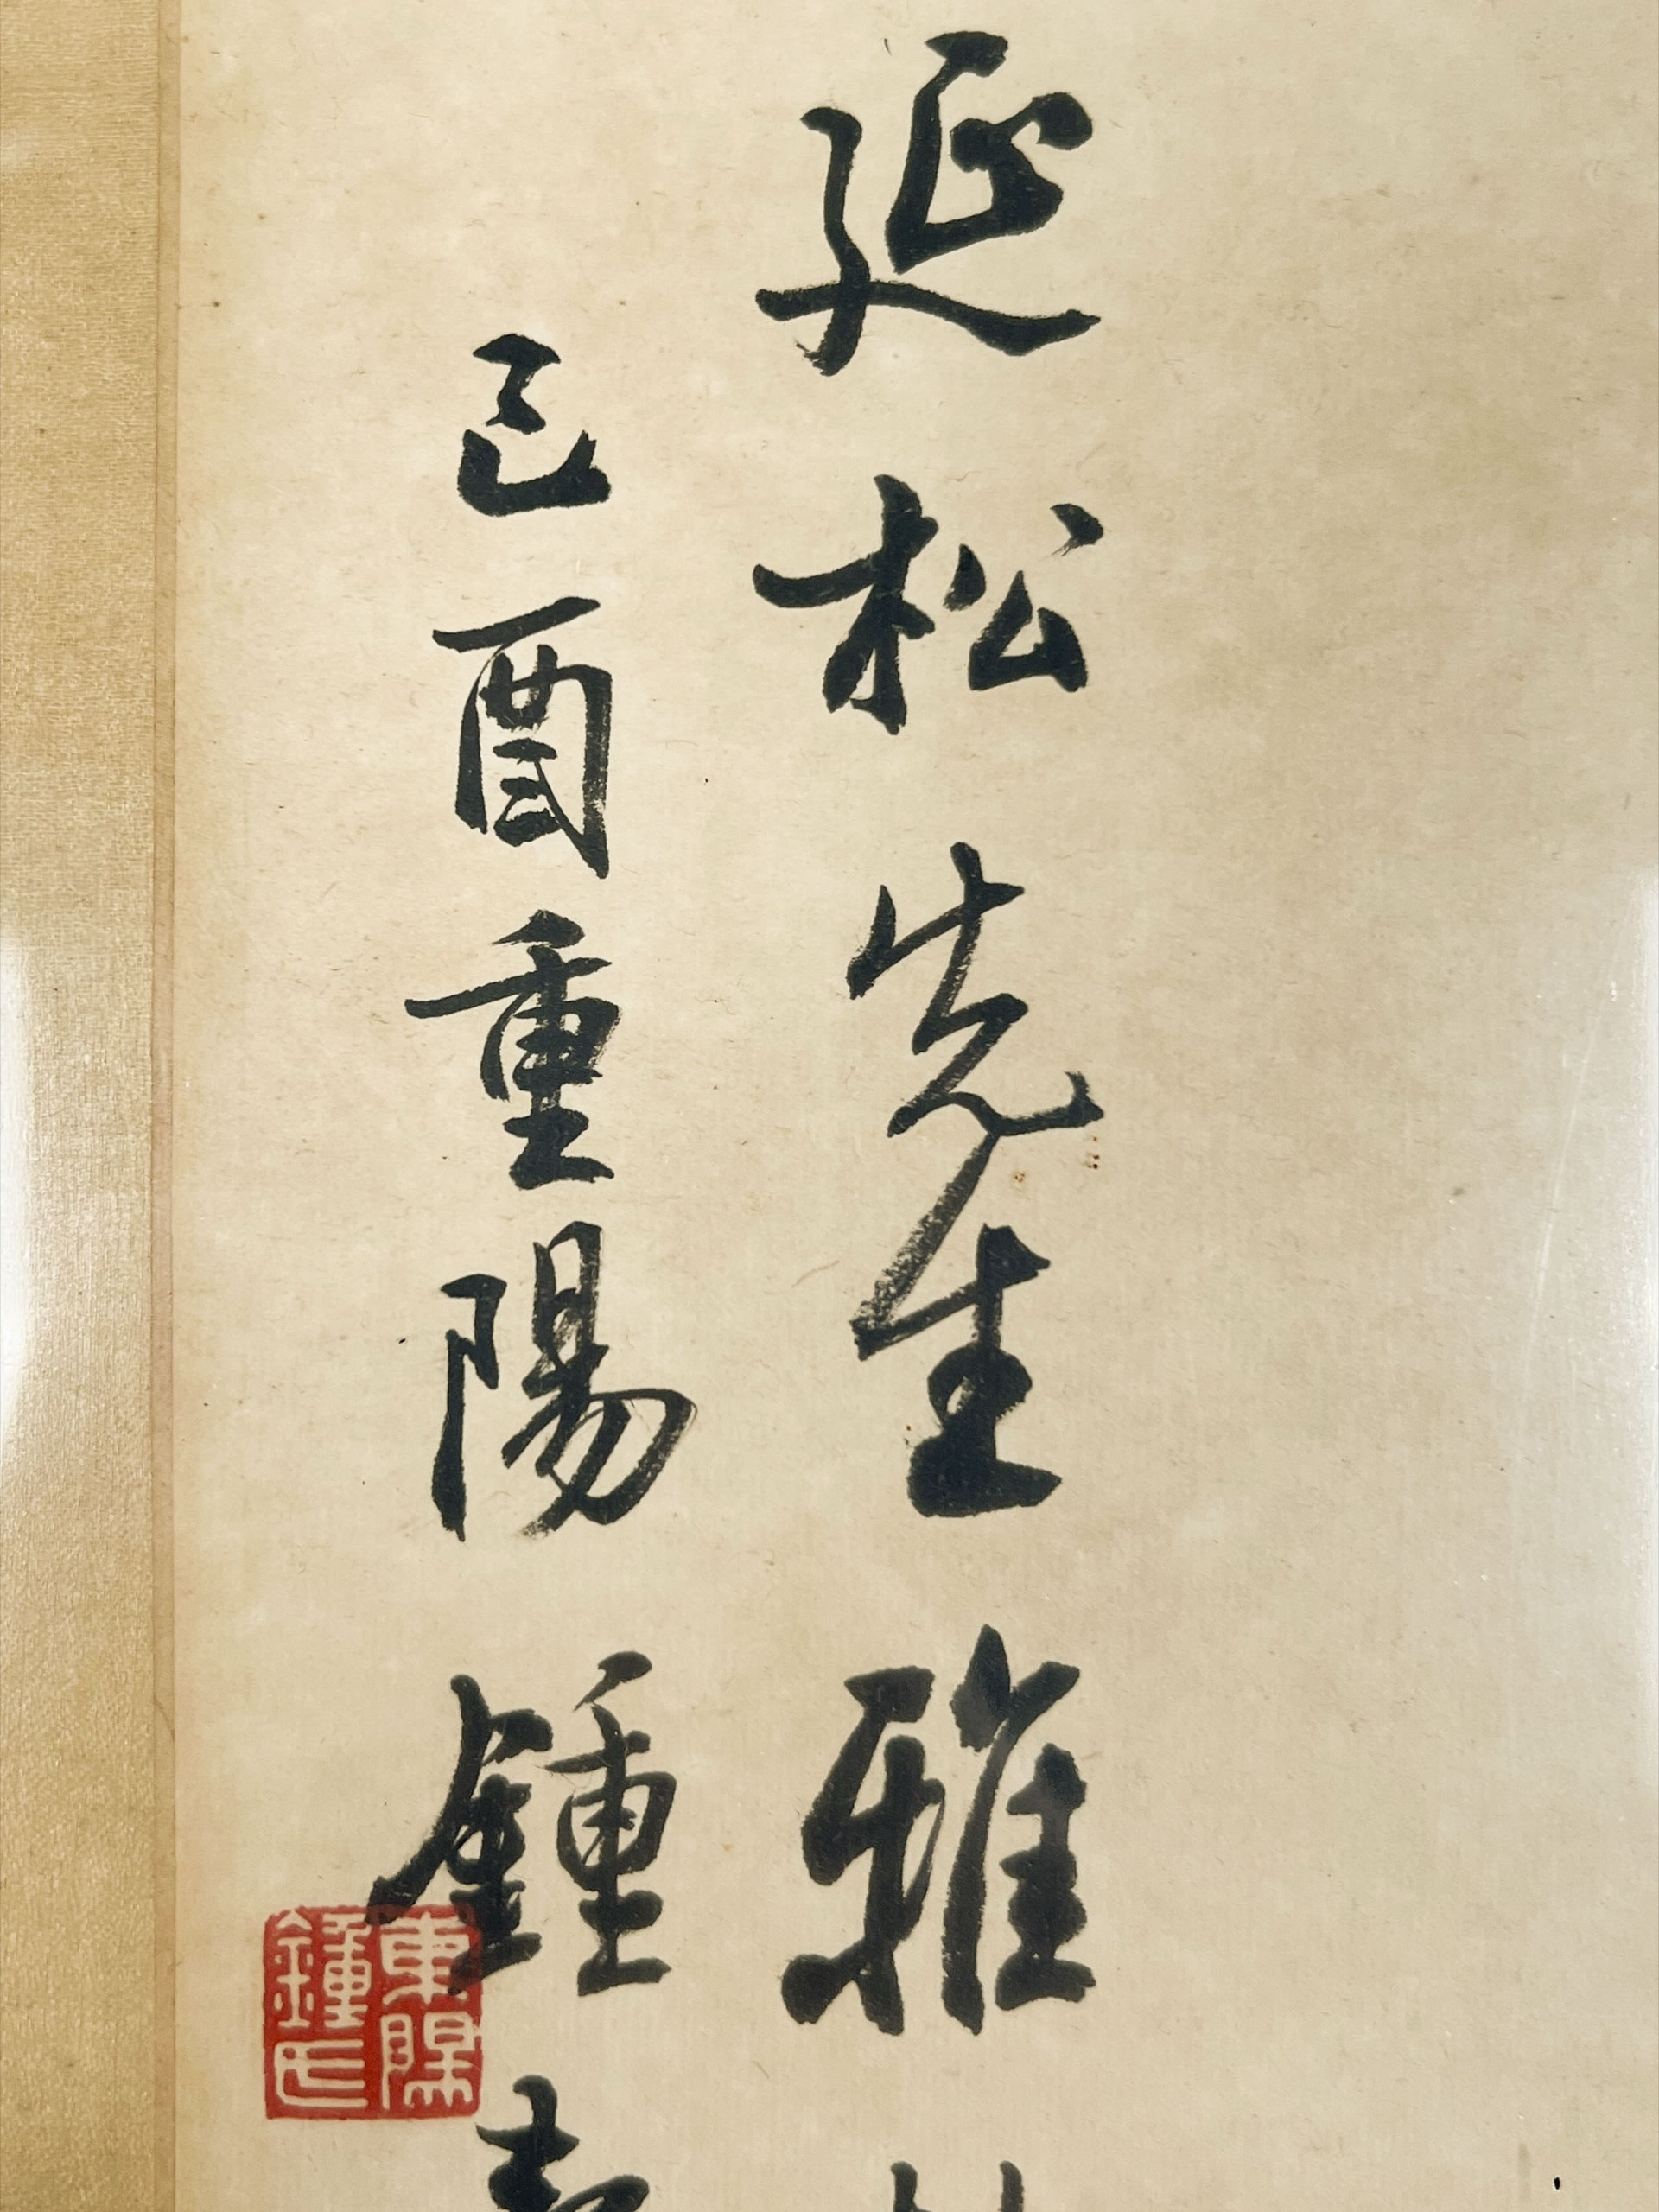 延松先生雅
己酉重陽鍾
東
鍾印